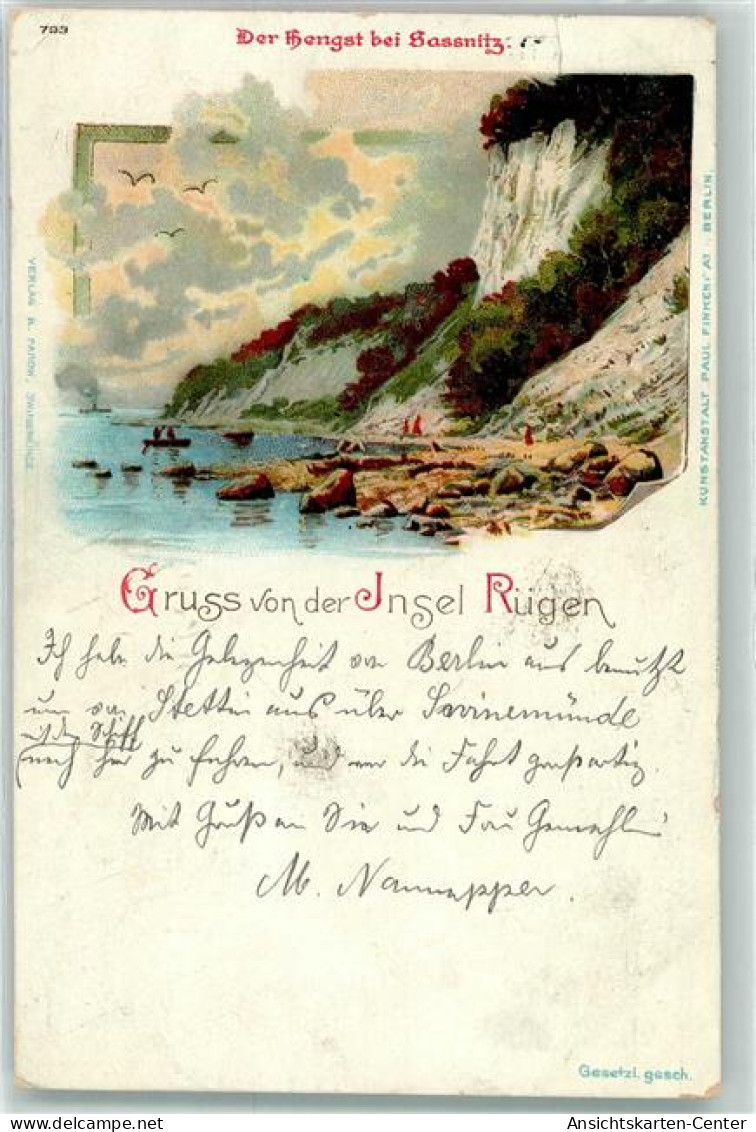 733
Der Hengst bei Sassnitz.
KUNSTANSTALT PAUL FINKENRAT BERLIN.
VERLAG SWINEMÜNDE
Gruss von der Insel Rügen
Ich habe die Gelegenheit von Berlin aus benutzt
um von Stettin aus über Swinemünde
mit dem Schiff
nach hier zu fahren, und war die Fahrt großartig.
Mit Gruß an Sie und Frau Gemahlin
M.
Gesetzl. gesch.
Ansichtskarten-Center